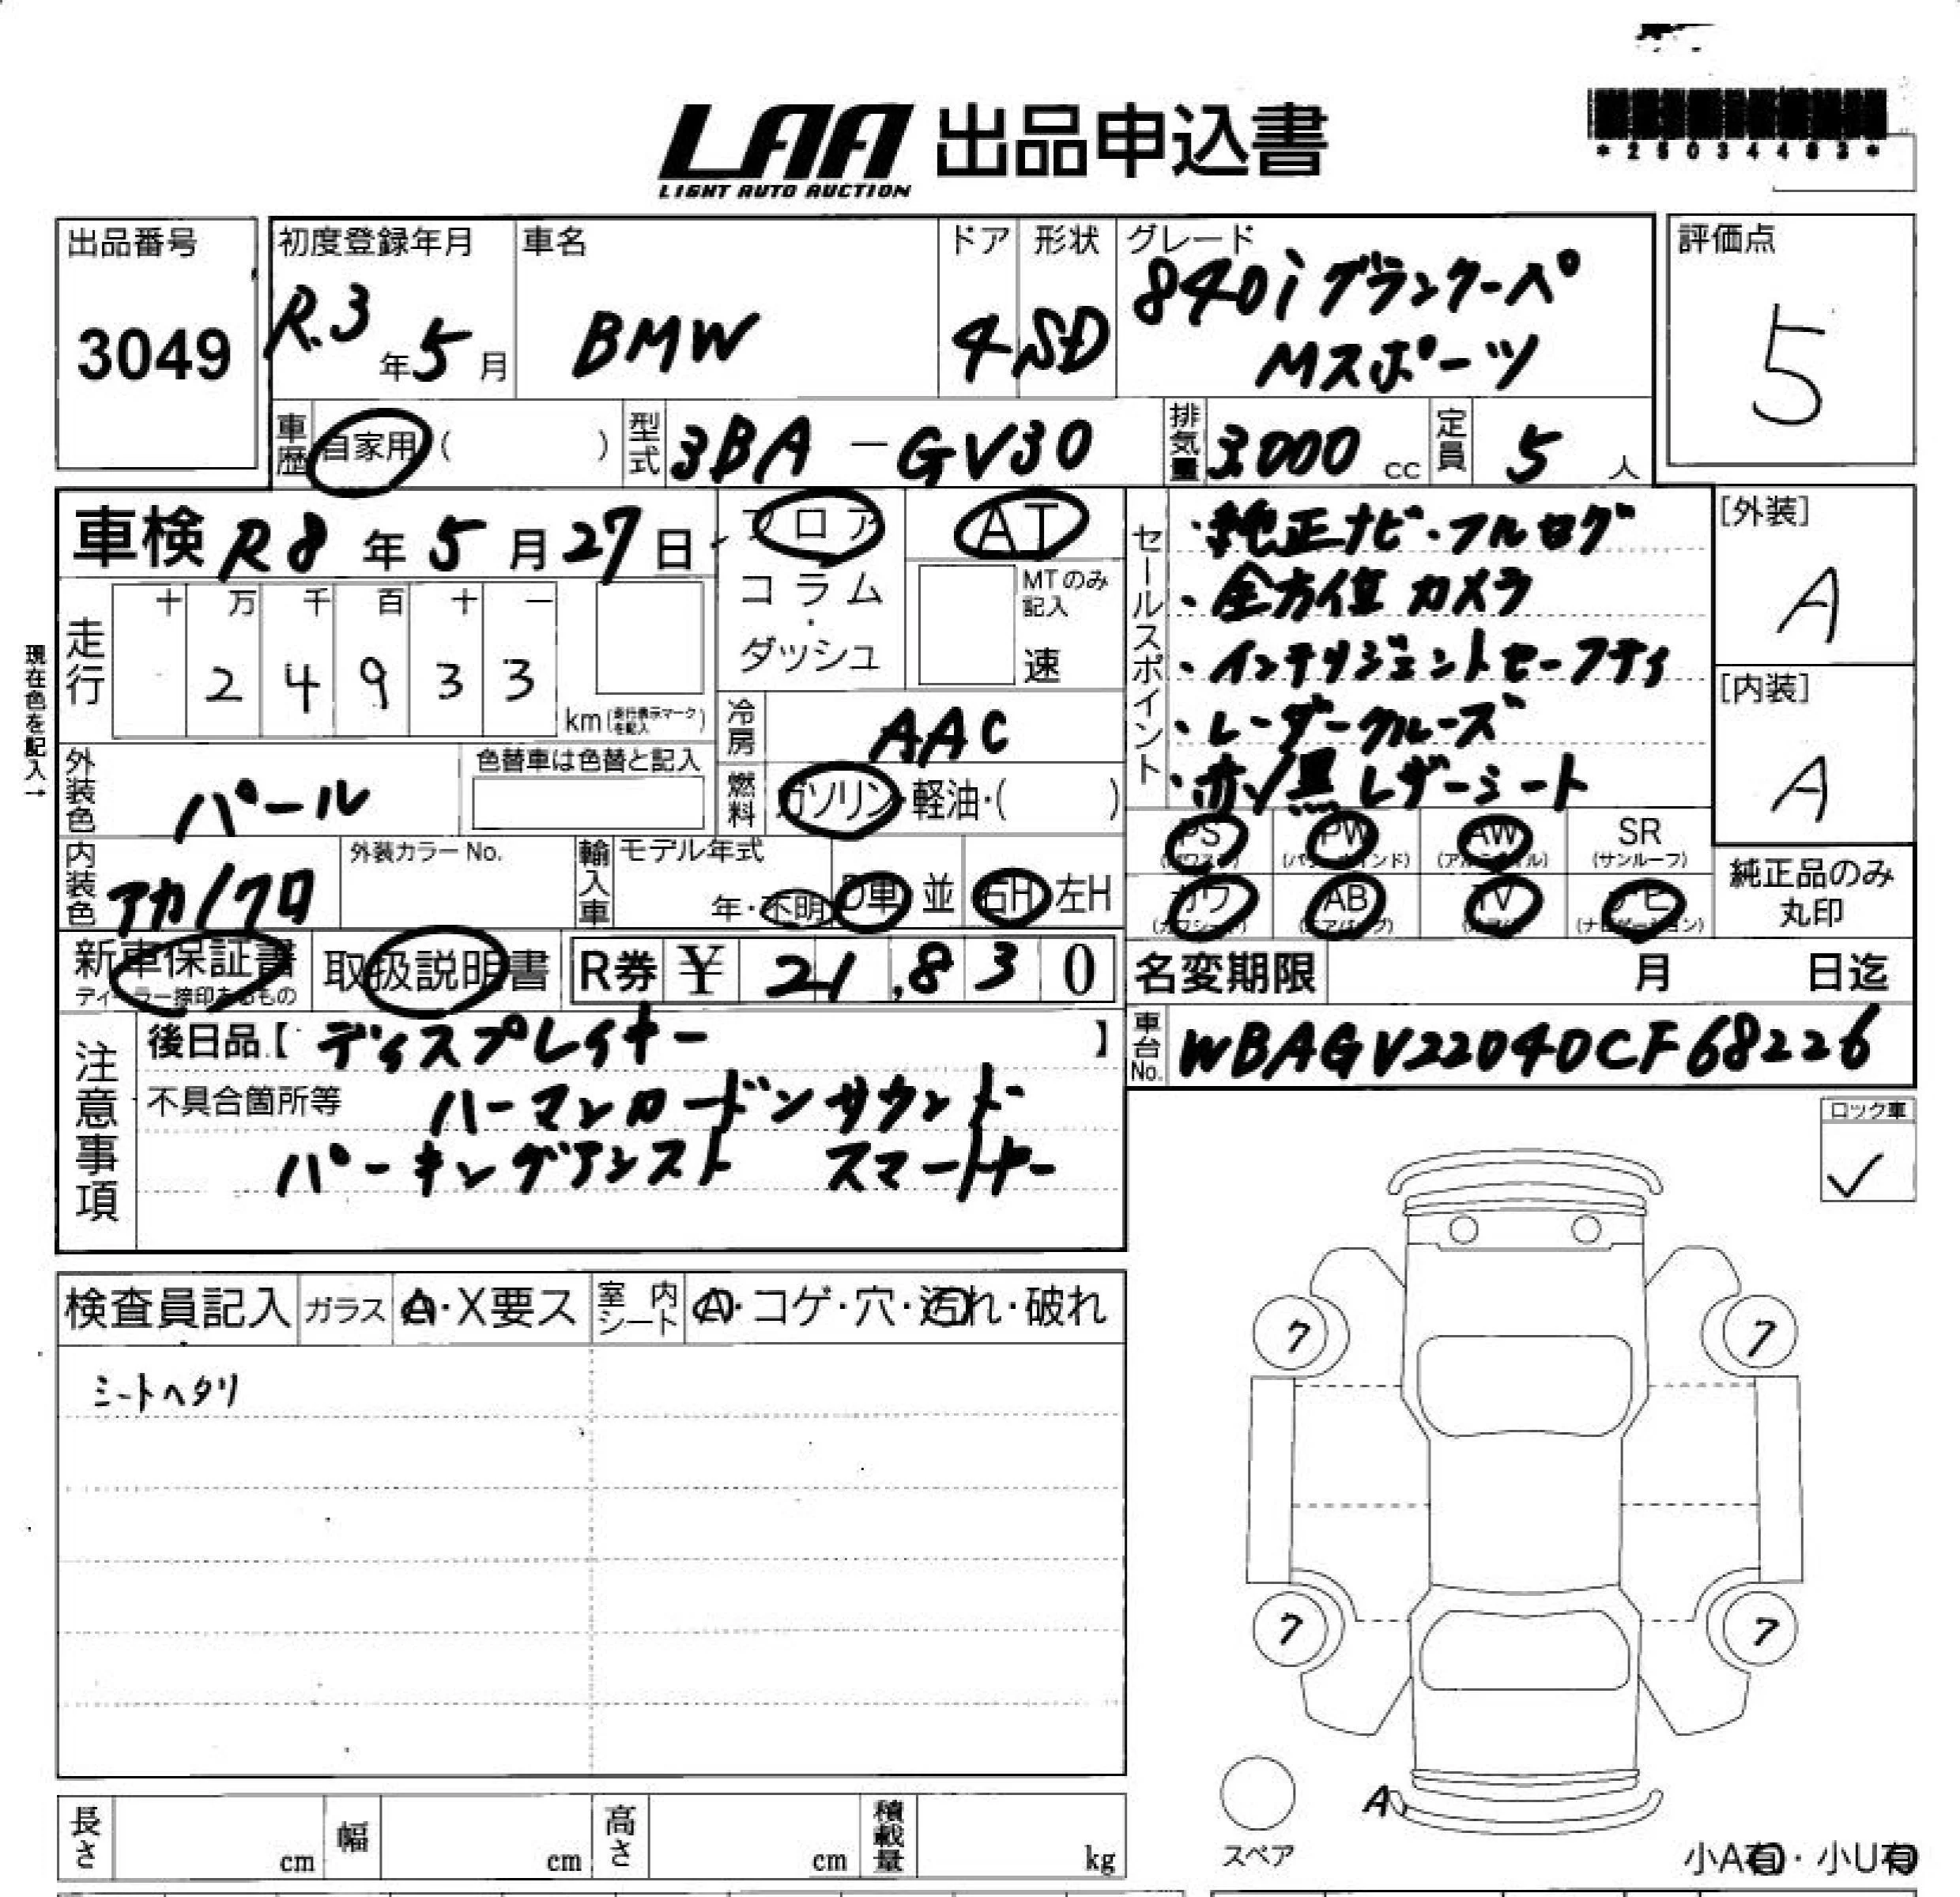 LAA 出品申込書
LIGHT AUTO AUCTION
*26034483*
出品番号
3049
初度登録年月
R.3年5月
車名
BMW
ドア
4
形状
SD
グレード
840i グランクーペ
Mスポーツ
評価点
5
車歴 自家用 ( )
型式 3BA-GV30
排気量 3,000 cc
定員 5 人
車検 R8年5月27日
フロア
コラム
・
ダッシュ
AT
MTのみ記入
速
走行
十 万 千 百 十 一
2 4 9 3 3
km (走行表示マークを記入)
現在色を記入→
冷房 AAC
外装色 パール
色替車は色替と記入
燃料 ガソリン・軽油・( )
内装色 アカ/クロ
外装カラーNo.
輸入車
モデル年式
年・不明
D車 並 右H 左H
セールスポイント
・純正ナビ・フルセグ
・全方位カメラ
・インテリジェントセーフティ
・レーダークルーズ
・赤/黒レザーシート
[外装]
A
[内装]
A
PS PW AW SR
(パワステ) (パワーウインド) (アルミホイル) (サンルーフ)
カワ AB TV ナビ
(カワシート) (エアバッグ) (テレビ) (ナビゲーション)
純正品のみ
丸印
新車保証書
ディーラー捺印あるもの
取扱説明書
R券 ¥ 21,830
名変期限 月 日迄
車台No. WBAGV22040CF68226
注意事項
後日品【ディスプレイキー】
不具合箇所等 ハーマンカードンサウンド
パーキングアシスト スマートキー
ロック車
✓
検査員記入 ガラス A・X要ス 室内シート A・コゲ・穴・汚れ・破れ
シートヘタリ
7 7
7 7
A
スペア
小A有・小U有
長さ cm 幅 cm 高さ cm 積載量 kg